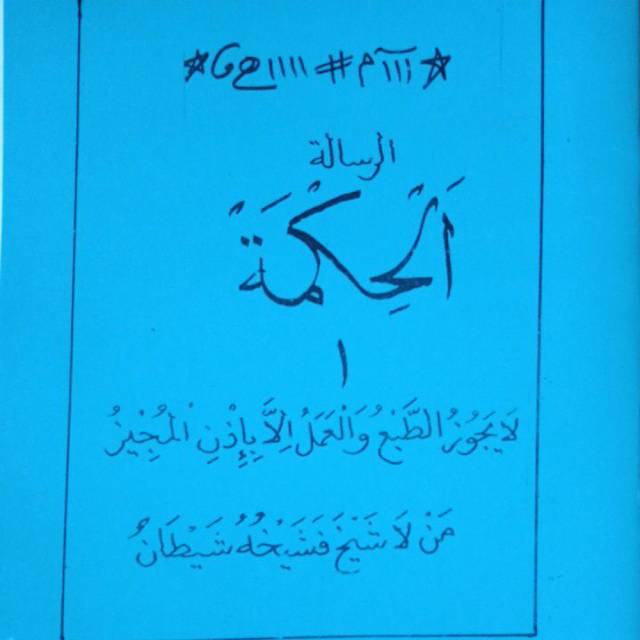 الرسالة
اَلْحِكْمَةْ
١
لَا يَجُوْزُ الطَّبْعُ وَالْعَمَلُ اِلَّا بِإِذْنِ الْمُجِيْزُ
مَنْ لَا شَيْخَ فَشَيْخُهُ شَيْطَانُ